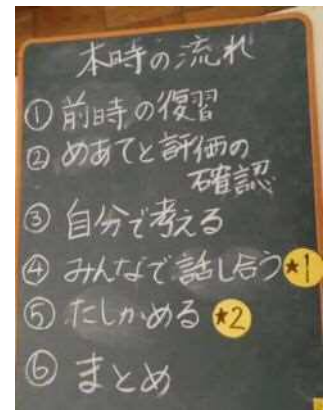 本時の流れ
① 前時の復習
② めあてと評価の
確認
③ 自分で考える
④ みんなで話し合う ★1
⑤ たしかめる ★2
⑥ まとめ